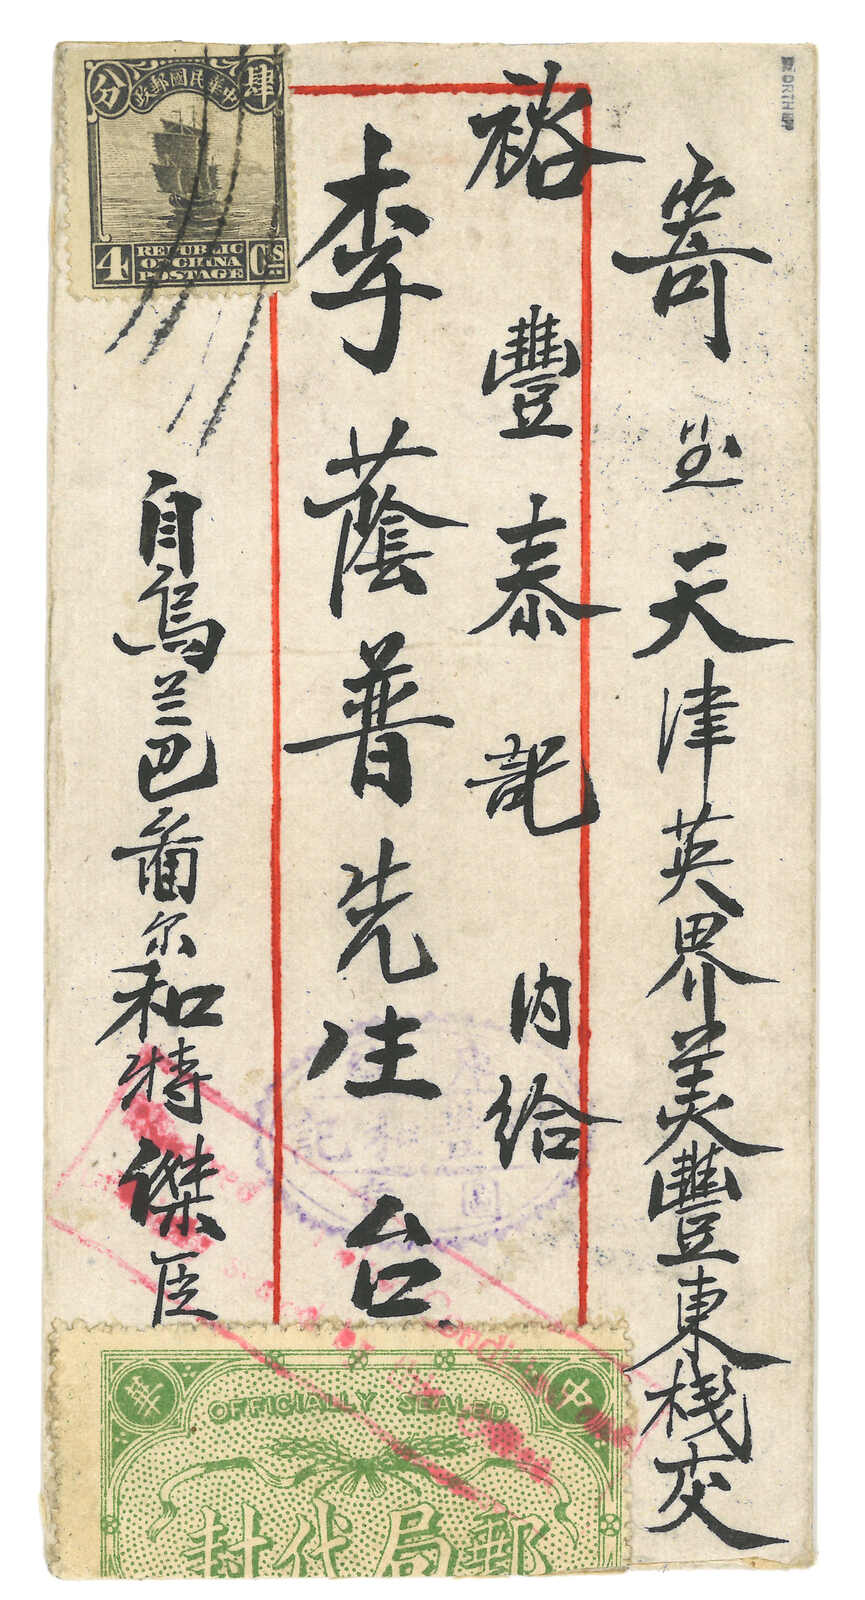 寄至天津英界美豐東棧交
裕豐泰記内給
李蔭普先生台
自烏兰巴圖尔和特傑臣
中華民國郵政
肆
分
4
Cts
REPUBLIC
OF CHINA
POSTAGE
中
華
OFFICIALLY SEALED
郵局代封